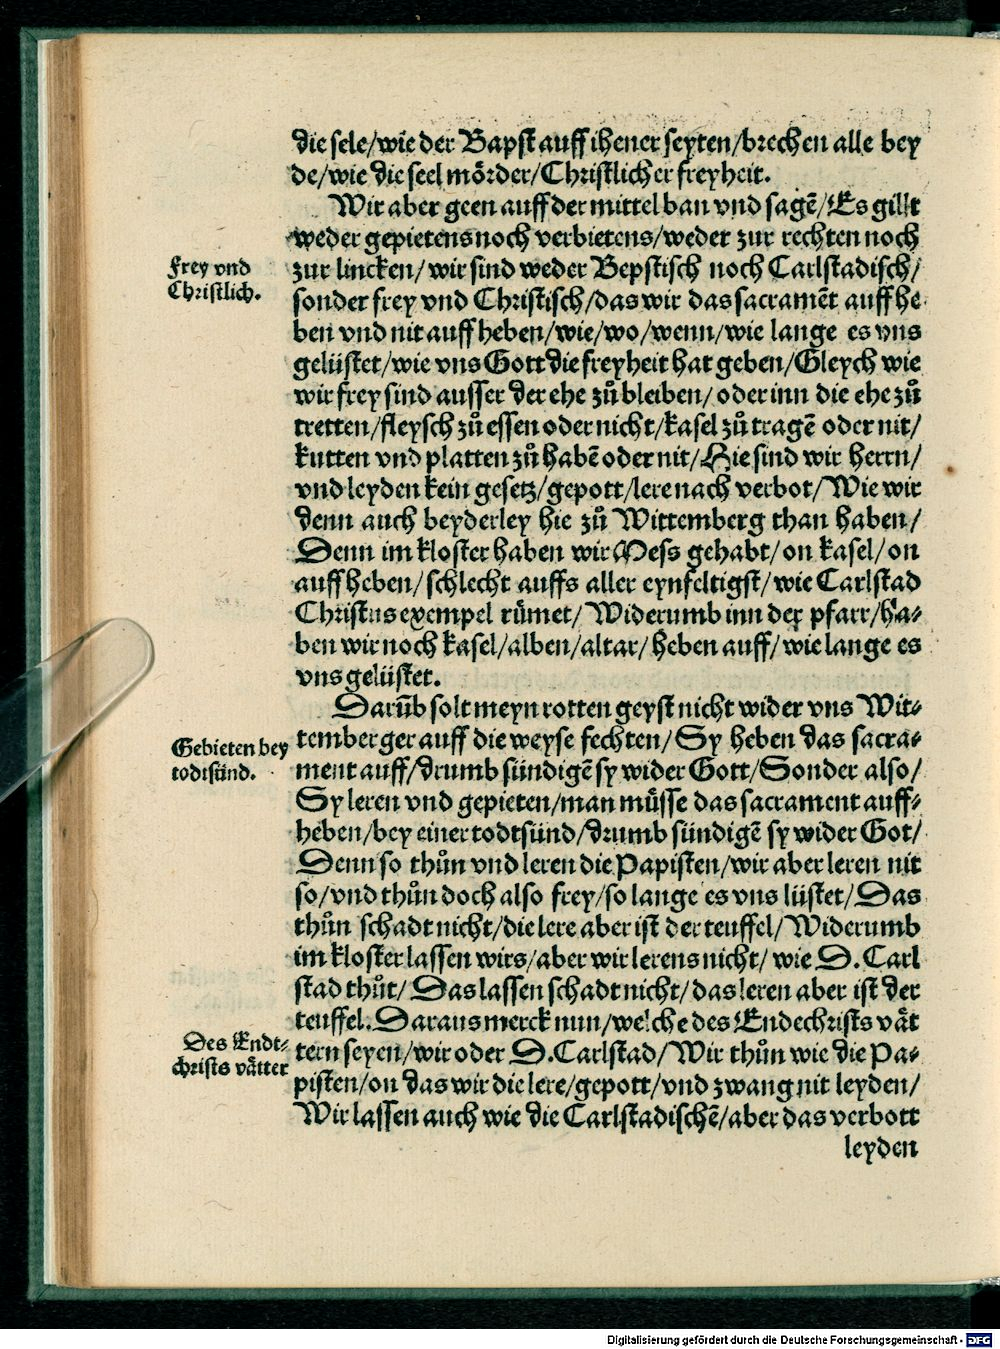 die sele/wie der Bapst auff ihener seyten/brechen alle bey
de/wie die seel mörder/Christlicher freyheit.
Wir aber geen auff der mittel ban vnd sagē/Es gillt
weder gepietens noch verbietens/weder zur rechten noch
Frey vnd
Christlich.
zur lincken/wir sind weder Bepstisch noch Carlstadisch/
sonder frey vnd Christisch/das wir das sacramēt auff he
ben vnd nit auff heben/wie/wo/wenn/wie lange es vns
gelüstet/wie vns Gott die freyheit hat geben/Gleych wie
wir frey sind ausser der ehe zů bleiben/oder inn die ehe zů
tretten/fleysch zů essen oder nicht/kasel zů tragē oder nit/
kutten vnd platten zů habē oder nit/Hie sind wir herrn/
vnd leyden kein gesetz/gepott/lere nach verbot/Wie wir
denn auch beyderley hie zů Wittemberg than haben/
Denn im kloster haben wir Mess gehabt/on kasel/on
auff heben/schlecht auffs aller eynfeltigst/wie Carlstad
Christus exempel rümet/Widerumb inn der pfarr/ha⸗
ben wir noch kasel/alben/altar/heben auff/wie lange es
vns gelüstet.
Darūb solt meyn rotten geyst nicht wider vns Wit⸗
Gebieten bey
todtsünd.
temberger auff die weyse fechten/Sy heben das sacra⸗
ment auff/drumb sündigē sy wider Gott/Sonder also/
Sy leren vnd gepieten/man müsse das sacrament auff⸗
heben/bey einer todtsünd/drumb sündigē sy wider Got/
Denn so thůn vnd leren die Papisten/wir aber leren nit
so/vnd thůn doch also frey/so lange es vns lüstet/Das
thůn schadt nicht/die lere aber ist der teuffel/Widerumb
im kloster lassen wirs/aber wir lerens nicht/wie D. Carl
stad thůt/Das lassen schadt nicht/das leren aber ist der
teuffel. Daraus merck nun/welche des Endechrists vät
Des Endt⸗
christs vätter
tern seyen/wir oder D. Carlstad/Wir thůn wie die Pa⸗
pisten/on das wir die lere/gepott/vnd zwang nit leyden/
Wir lassen auch wie die Carlstadischē/aber das verbott
leyden
Digitalisierung gefördert durch die Deutsche Forschungsgemeinschaft - DFG